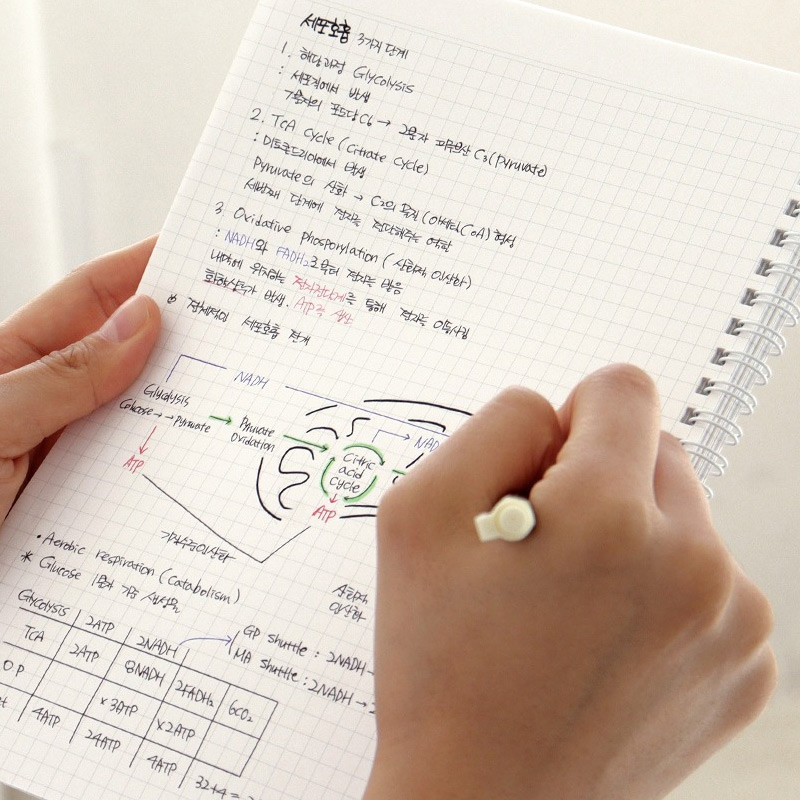 세포호흡 3가지 단계
1. 해당과정 Glycolysis
: 세포질에서 발생
7분자의 포도당 C6 → 2분자 피루브산 C3 (Pyruvate)
2. TCA cycle (Citrate cycle)
: 미토콘드리아에서 발생
Pyruvate의 산화 → C2의 물질 (아세틸 CoA) 형성
세번째 단계에 전자를 전달해주는 역할
3. Oxidative phosporylation (산화적 인산화)
: NADH와 FADH2로부터 전자를 받음
내막에 위치하는 전자전달계를 통해 전자를 이동시킴
화학삼투가 발생. ATP를 생산
전체적인 세포호흡 단계
NADH
Glycolysis
Glucose → → Pyruvate
Pyruvate oxidation
Citric acid cycle
NAD
ATP
ATP
기질수준인산화
산화적 인산화
• Aerobic respiration (Catabolism)
* Glucose 1분자 기준 생성물
Glycolysis 2ATP 2NADH
GP shuttle : 2NADH →
MA shuttle : 2NADH → 2
TCA 2ATP 8NADH 2FADH2 6CO2
OP ×3ATP ×2ATP
4ATP 24ATP 4ATP
32+4 =